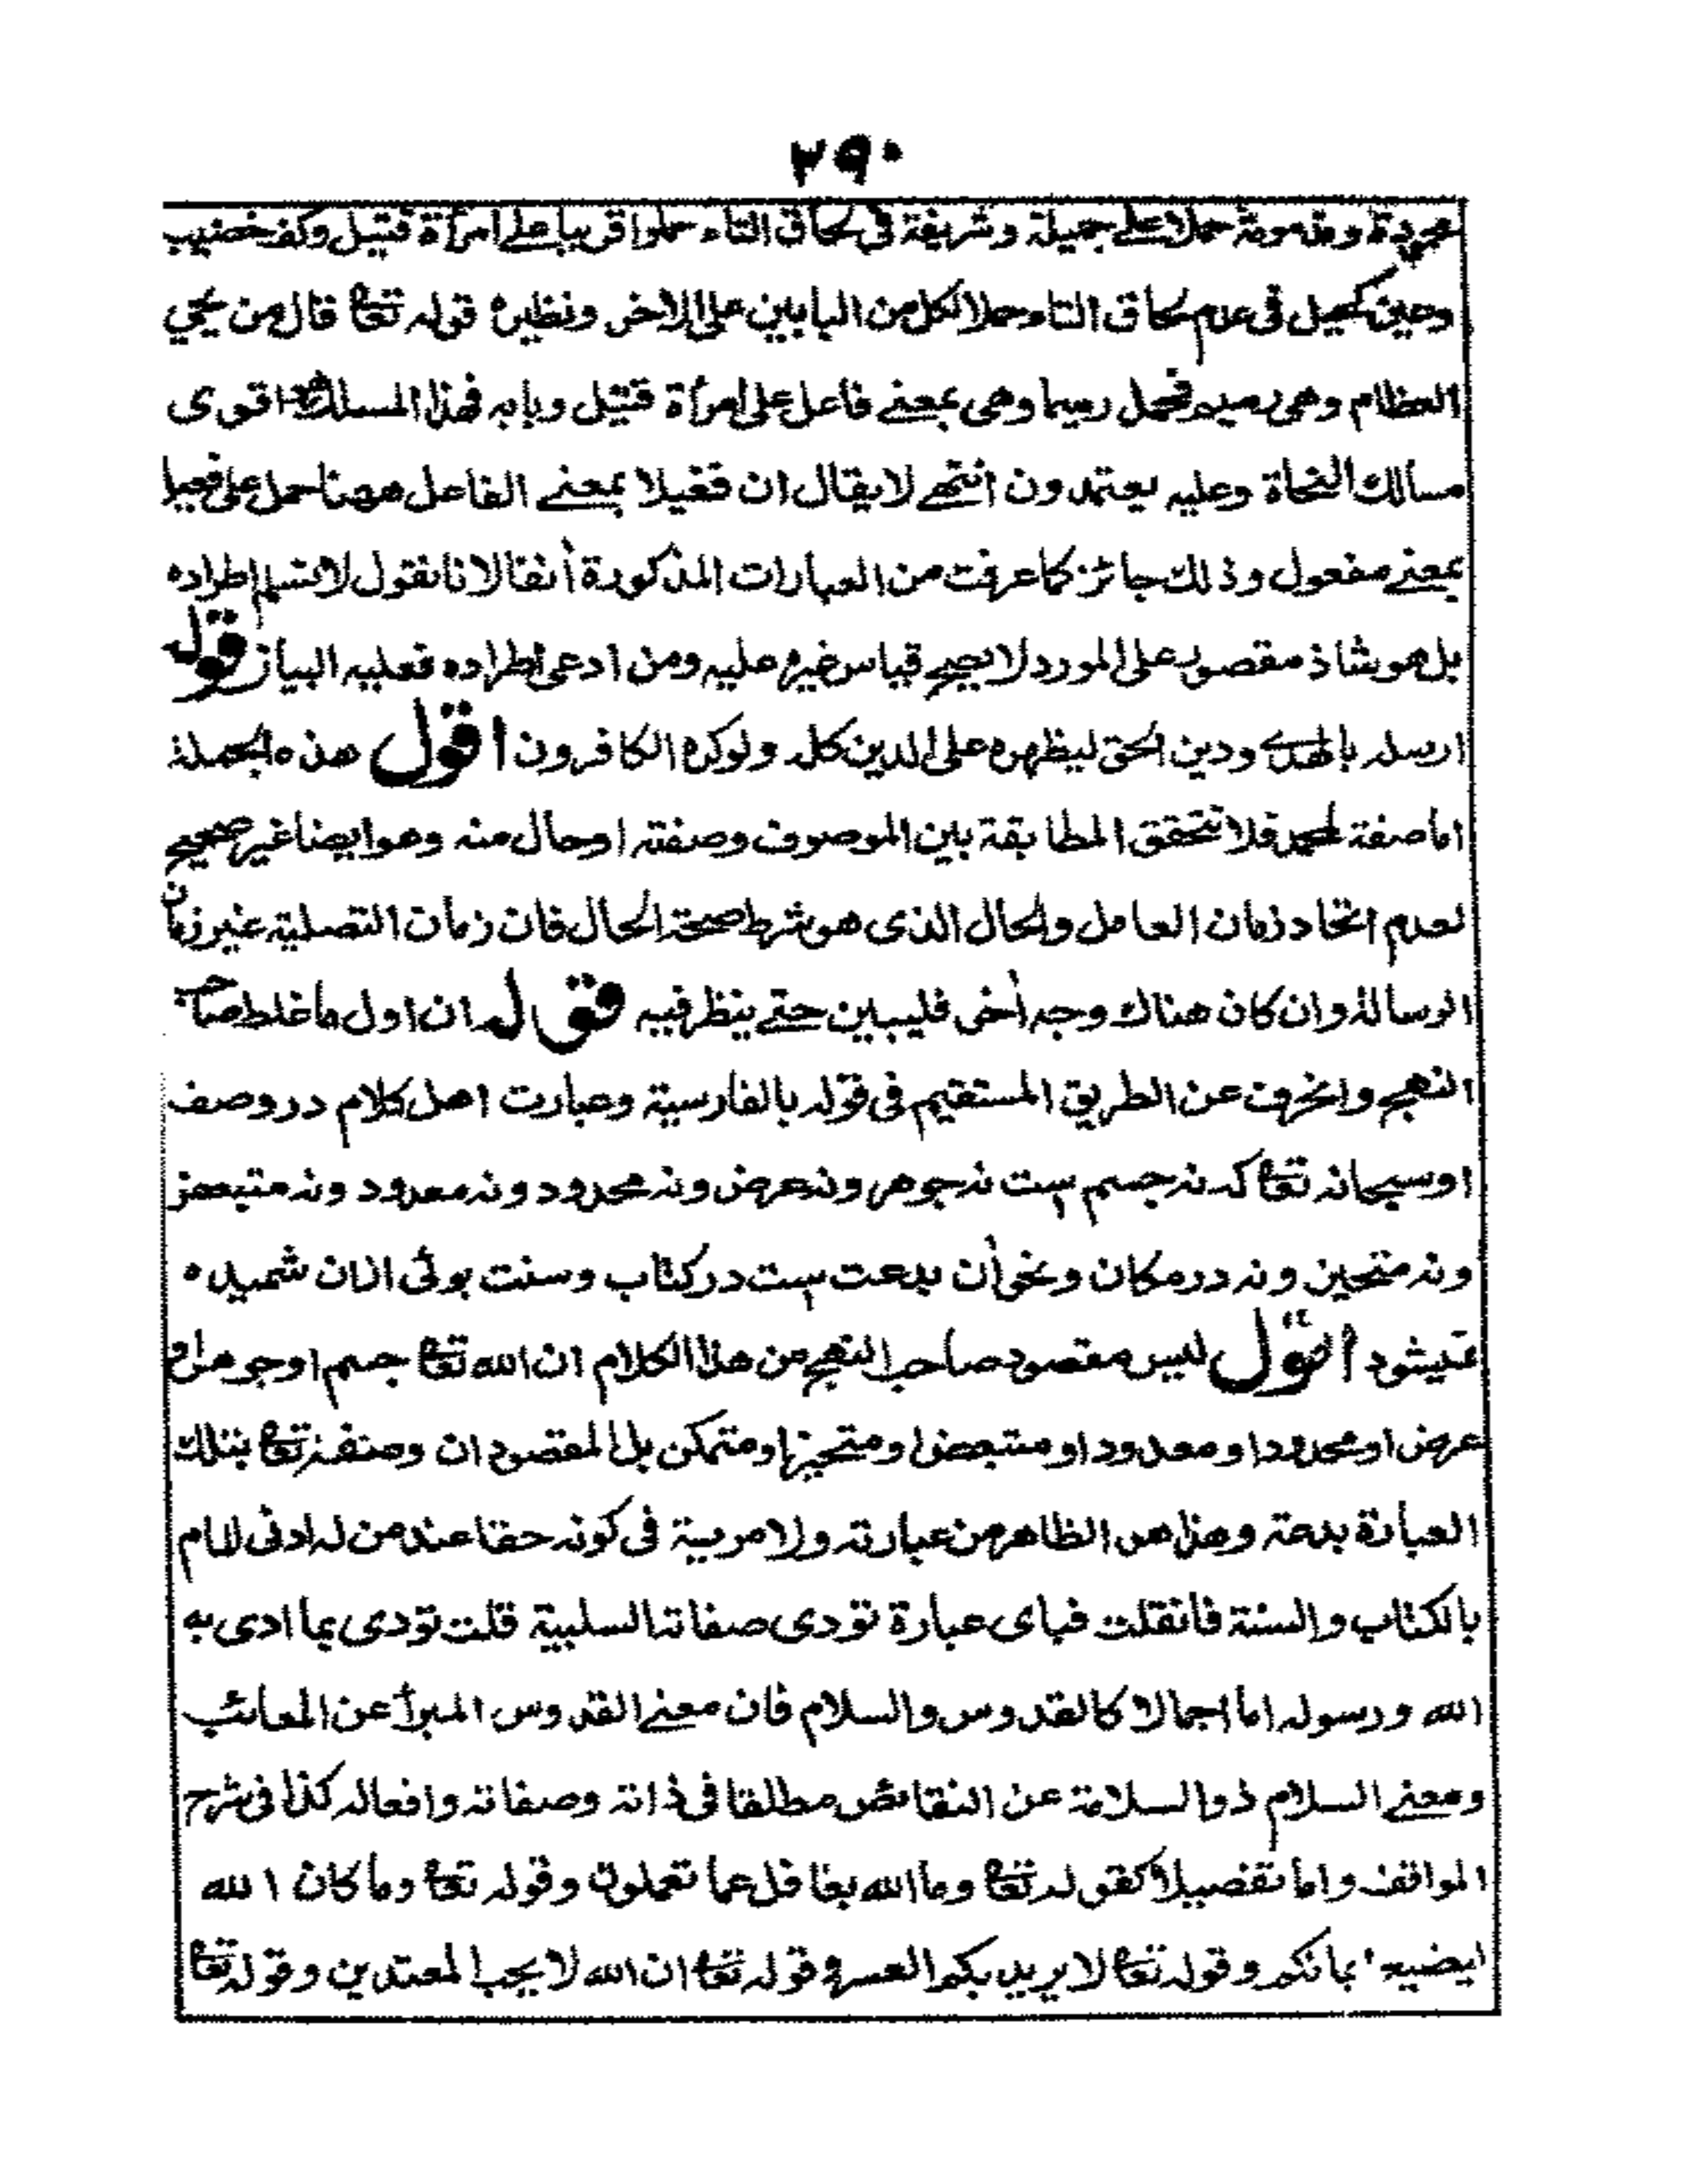 ٣٩٠
حميدة وذميمة حملا على جميلة وشريفة فى لحاق التاء حملوا قريبا على امرأة قتيل وكف خضيب
وعين كحيل فى عدم لحاق التاء حملا لكل من البابين على الاخر ونظيره قوله تعا قال من يحيي
العظام وهى رميم فحمل رميما وهى بمعنے فاعل على امرأة قتيل وبابه فهذا المسلك اقوى
مسالك النحاة وعليه يعتمدون انتهے لا يقال ان فعيلا بمعنے الفاعل ههنا حمل على فعيل
بمعنے مفعول وذلك جائز كما عرفت من العبارات المذكورة أنفا لانا نقول لا نسلم اطراده
بل هو شاذ مقصور على المورد لا يصح قياس غيره عليه ومن ادعى اطراده فعليه البيان قوله
ارسله بالهدے ودين الحق ليظهره على الدين كله ولوكره الكافرون اقول هذه الجملة
اما صفة لمحمد فلا تتحقق المطابقة بين الموصوف وصفته اوحال منه وهو ايضا غير صحيح
لعدم اتحاد زمان العامل والحال الذى هو شرط صحة الحال فان زمان التصلية غير زمان
الرسالة وان كان هناك وجه أخر فليبين حتے ينظر فيه قوله ان اول ما غلط صاحب
النهج وانحرف عن الطريق المستقيم فى قوله بالفارسية وعبارت اهل كلام در وصف
اوسبحانه تعا كه نه جسم ست نه جوهر ونه عرض ونه محدود ونه معدود ونه متبعض
ونه متحيز ونه در مكان ونحو أن بدعت ست در كتاب وسنت بوئى ازان شميده
نميشود أقول ليس مقصود صاحب النهج من هذا الكلام ان الله تعا جسم اوجوهر او
عرض او محدود او معدود او متبعض او متحيز او متمكن بل المقصود ان وصفه تعا بتلك
العبارة بدعة وهذا هو الظاهر من عبارته ولا مرية فى كونه حقا عند من له ادنى المام
بالكتاب والسنة فان قلت فباى عبارة تؤدى صفاته السلبية قلت تؤدى بما ادى به
الله ورسوله اما اجمالا كالقدوس والسلام فان معنے القدوس المبرأ عن المعائب
ومعنے السلام ذو السلامة عن النقائص مطلقا فى ذاته وصفاته وافعاله كذا فى شرح
المواقف واما تفصيلا كقوله تعا وما الله بغافل عما تعملون وقوله تعا وما كان الله
ليضيع ايمانكم وقوله تعا لا يريد بكم العسر وقوله تعا ان الله لا يحب المعتدين وقوله تعا